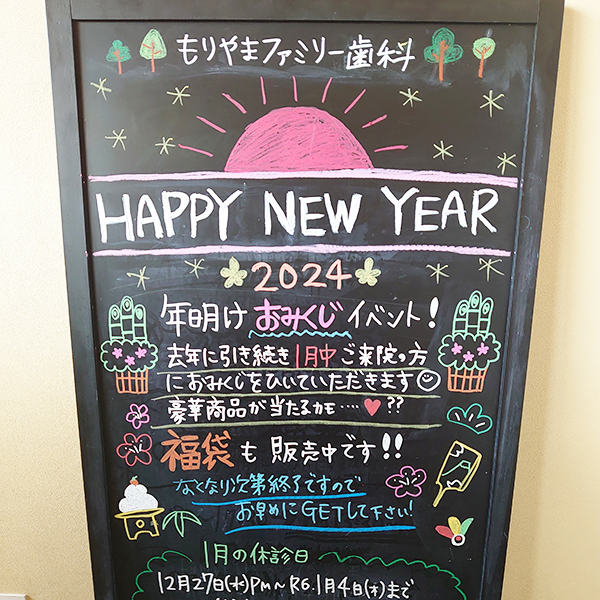 もりやまファミリー歯科
HAPPY NEW YEAR
2024
年明けおみくじイベント!
去年に引き続き1月中ご来院の方
におみくじをひいていただきます
豪華商品が当たるカモ…♥??
福袋も販売中です!!
なくなり次第終了ですので
お早めにGETして下さい!
1月の休診日
12月27日(水)PM~R6.1月4日(木)まで